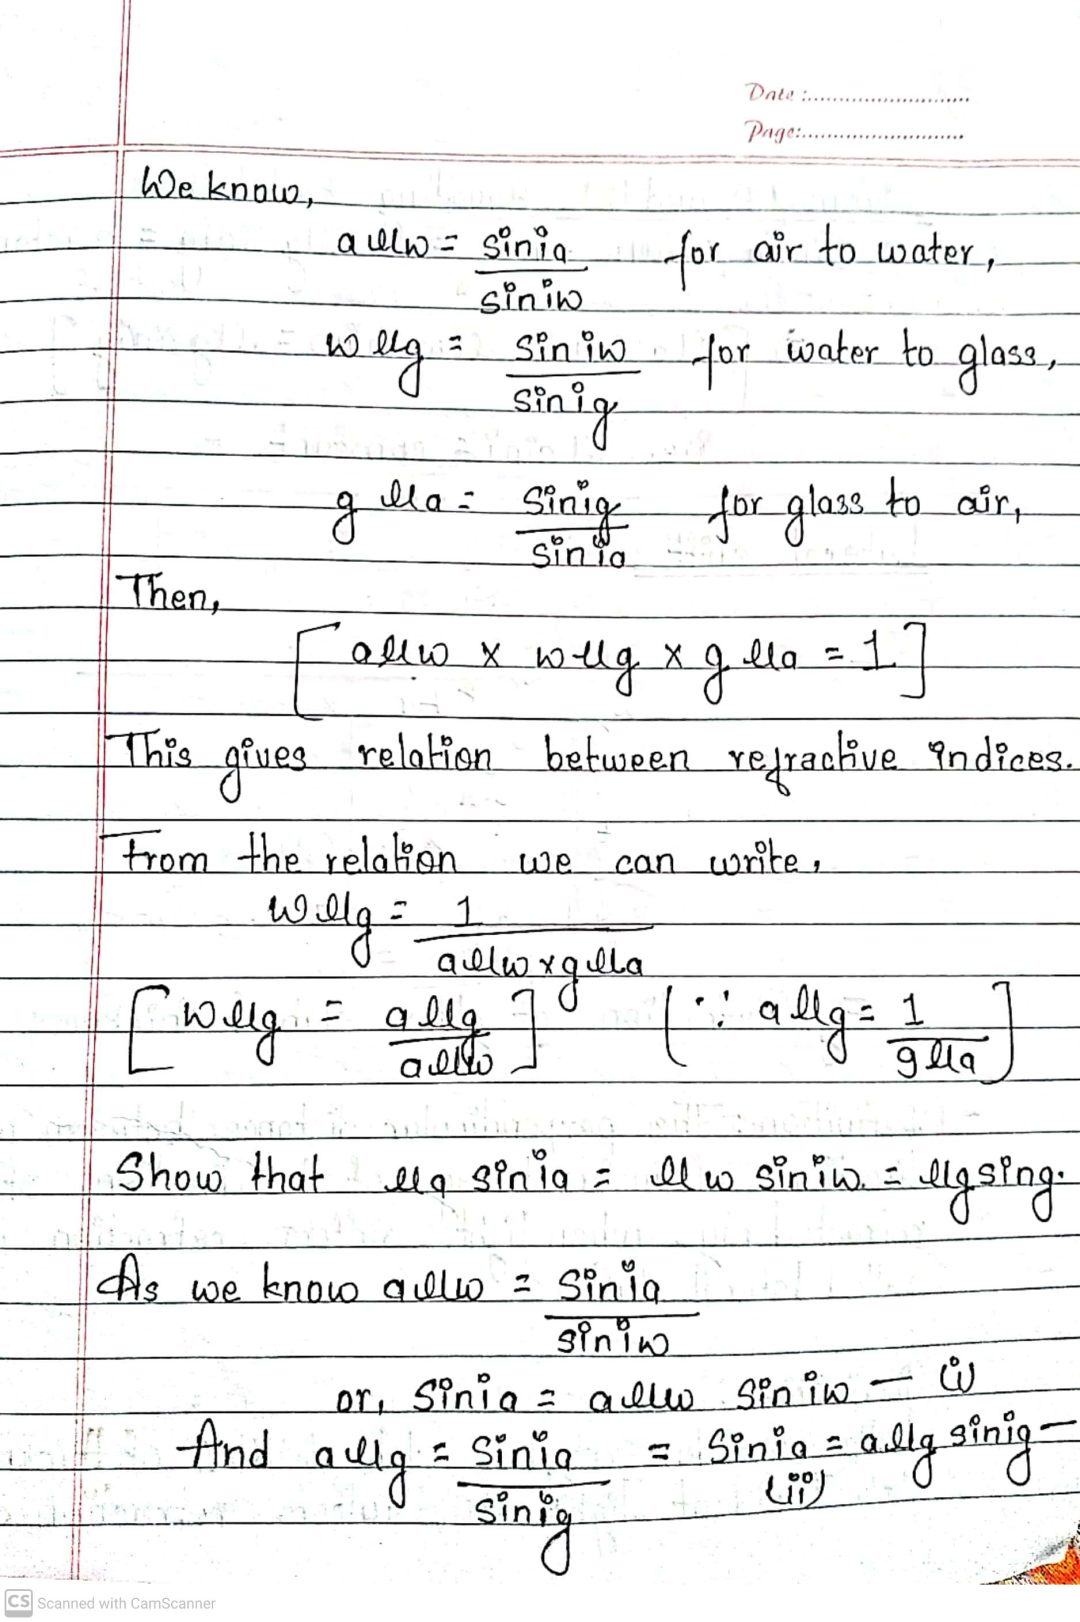 Date :..............................
Page:..............................
We know,
aμw = sinia for air to water,
siniw
wμg = siniw for water to glass,
sinig
gμa = sinig for glass to air,
sinia
Then,
[aμw x wμg x gμa = 1]
This gives relation between refractive indices.
From the relation we can write,
wμg = 1
aμw x gμa
[wμg = aμg] (∵ aμg = 1]
aμw gμa
Show that μa sinia = μw siniw. = μg sing.
As we know aμw = sinia
siniw
or, sinia = aμw siniw — (i)
And aμg = sinia = sinia = aμg sinig —
sinig (ii)
CS Scanned with CamScanner